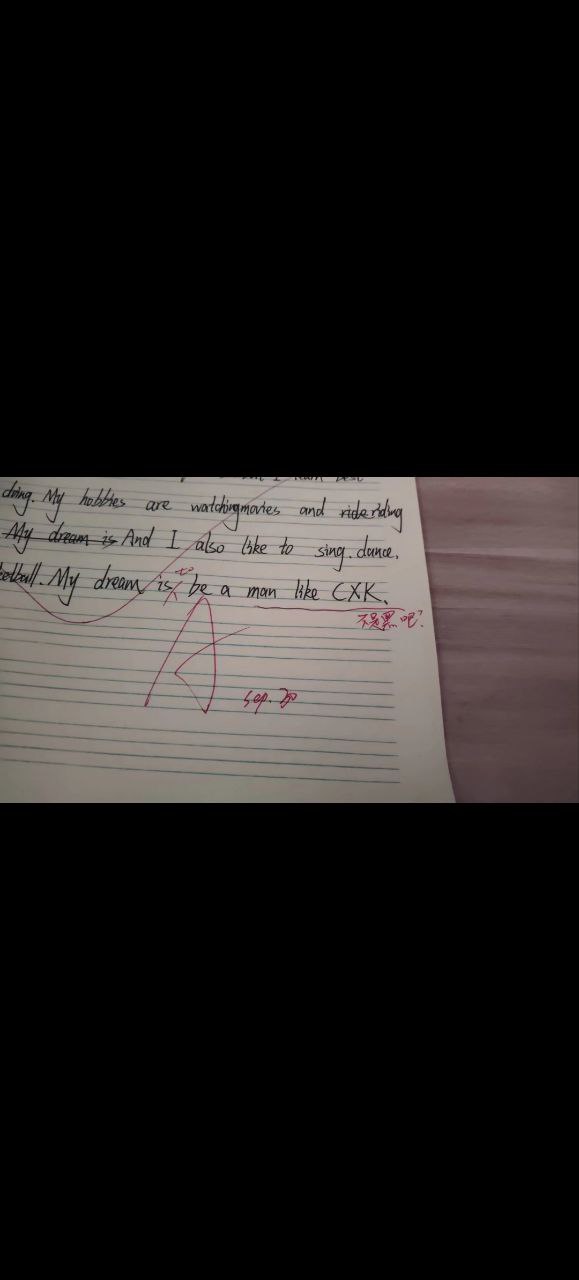 doing. My hobbies are watchingmovies and ride riding
My dream is And I also like to sing. dance.
ketball. My dream is to be a man like CXK.
不是黑吧?
A
Sep. 30